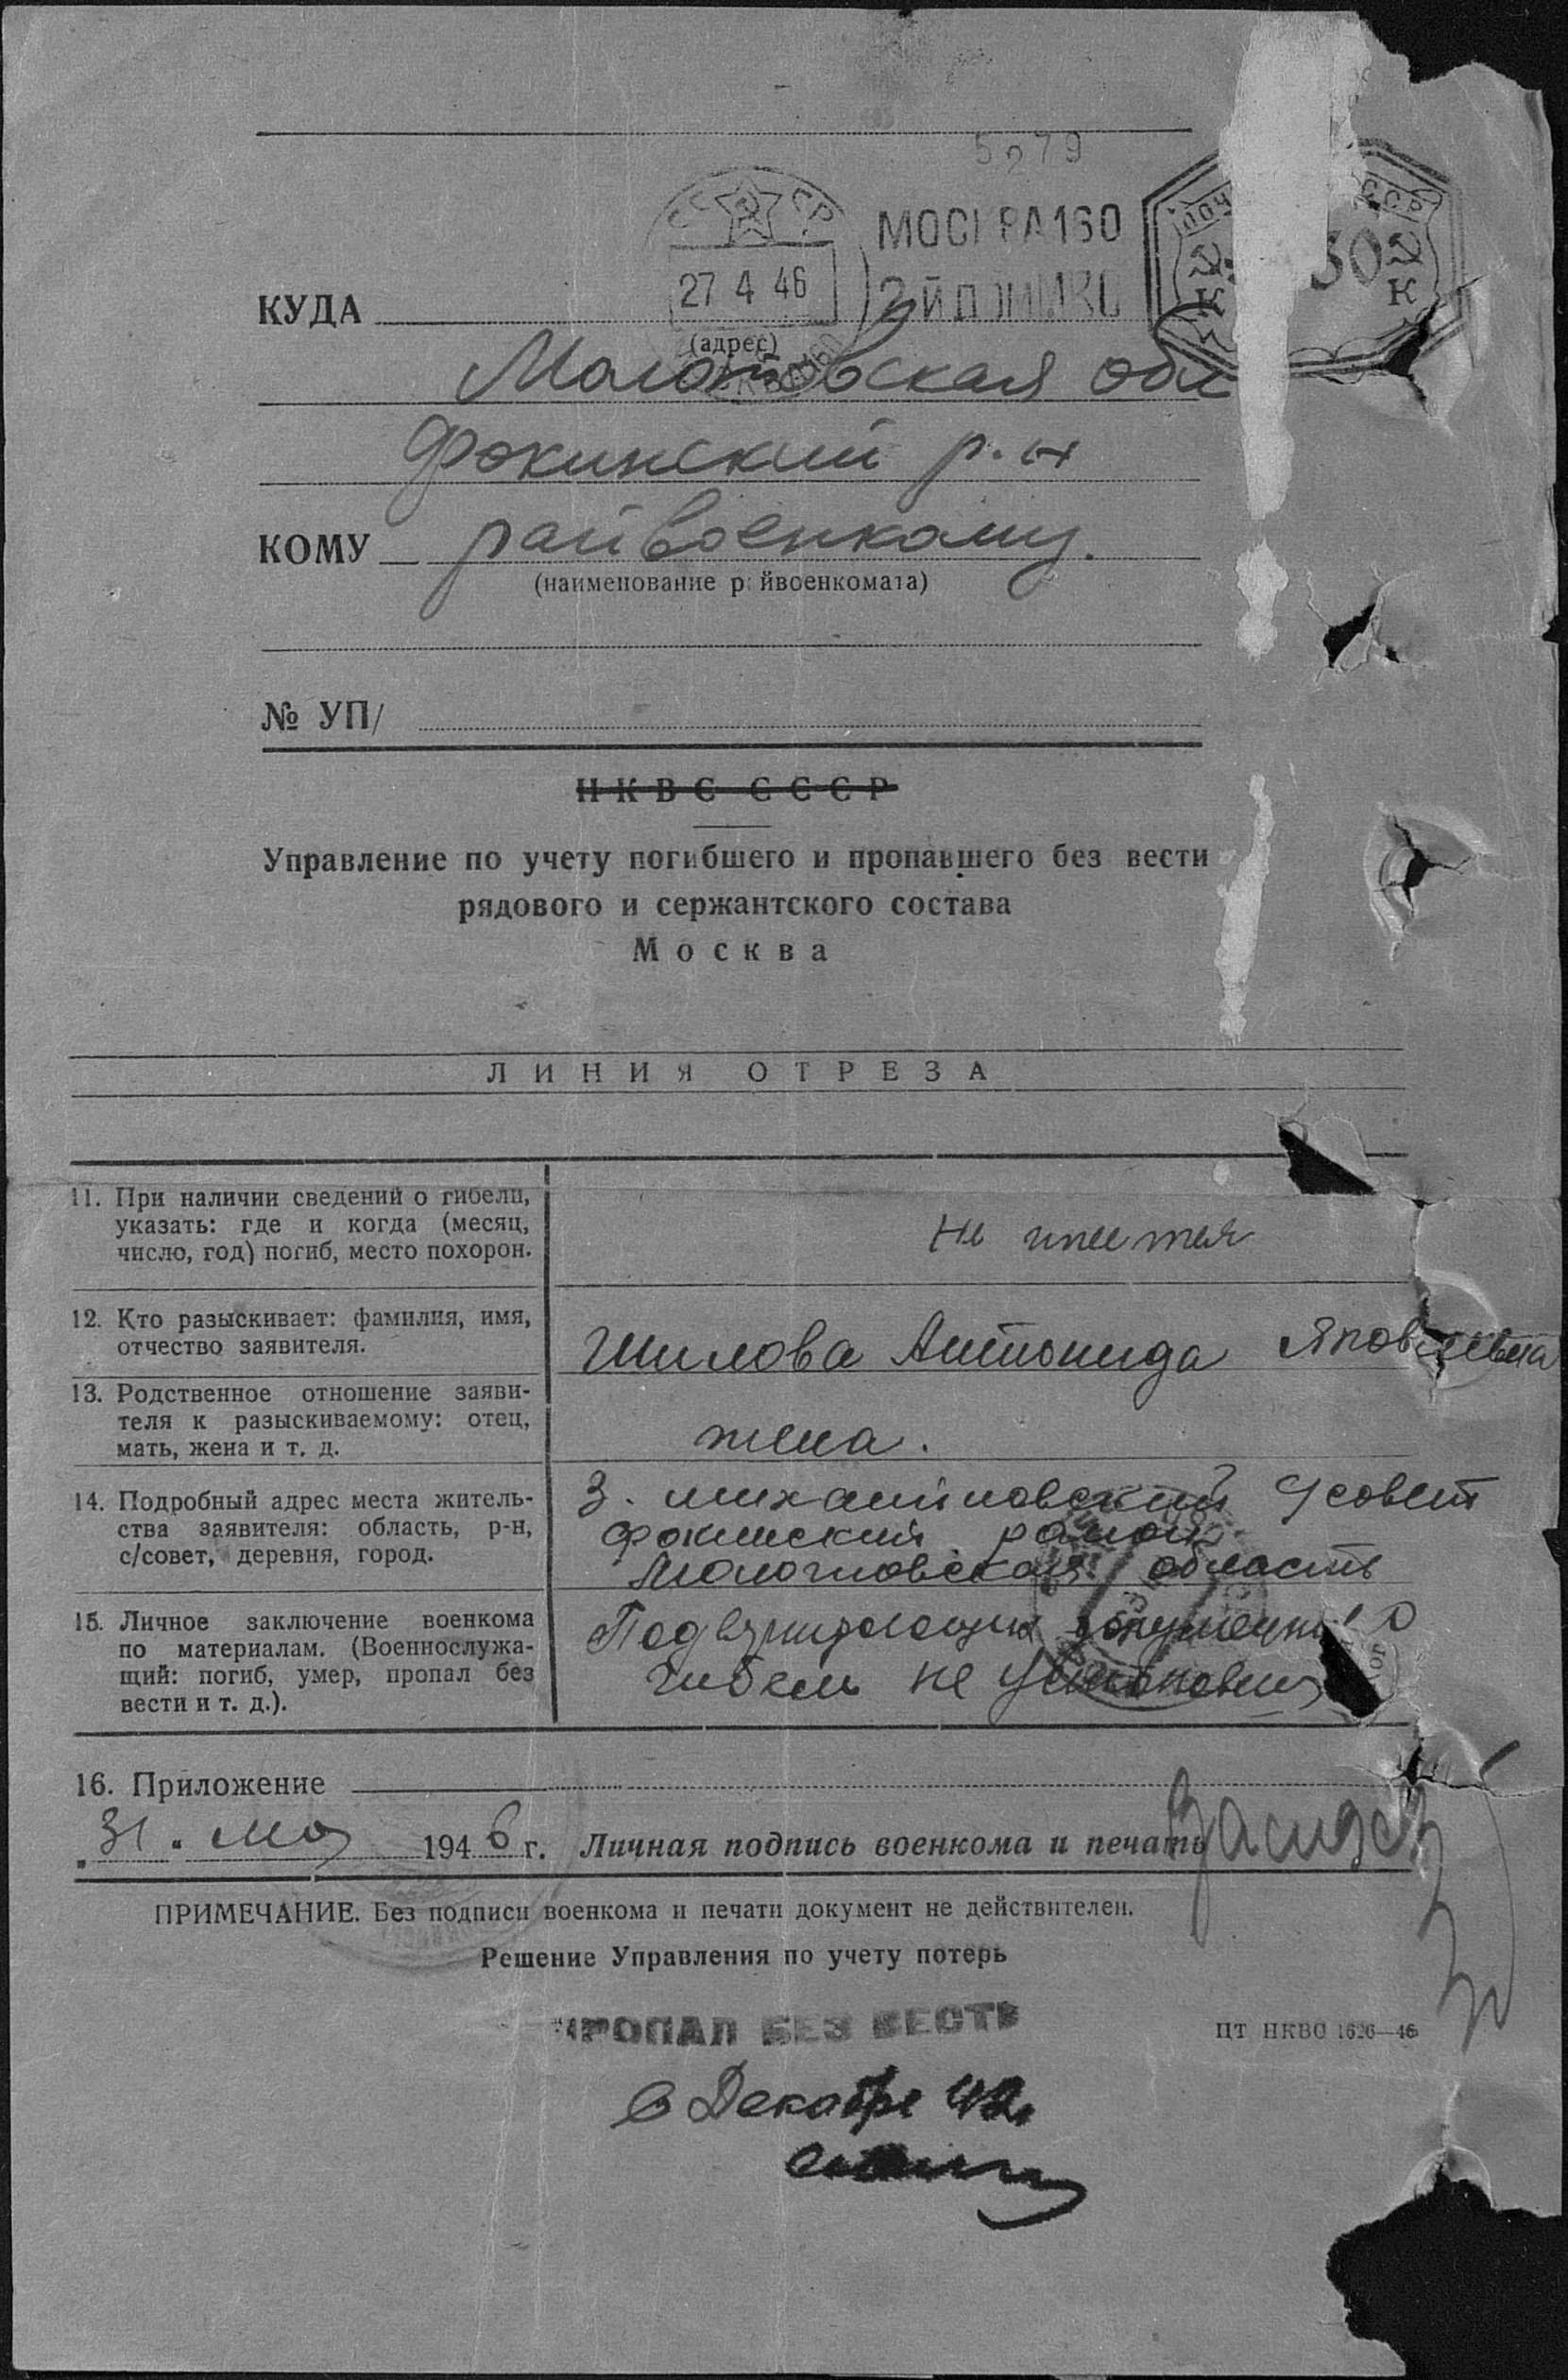 5279
СССР
27 4 46
МОСКВА 160
ПОЧ СССР
30
К К
КУДА
(адрес)
Молотовская обл
Фокинский р-н
КОМУ райвоенкому.
(наименование р йвоенкомата)
№ УП/
НКВС СССР
Управление по учету погибшего и пропавшего без вести
рядового и сержантского состава
Москва
ЛИНИЯ ОТРЕЗА
11. При наличии сведений о гибели,
указать: где и когда (месяц,
число, год) погиб, место похорон.
не имеется
12. Кто разыскивает: фамилия, имя,
отчество заявителя.
Шилова Антонида Яковлевна
13. Родственное отношение заяви-
теля к разыскиваемому: отец,
мать, жена и т. д.
жена.
14. Подробный адрес места житель-
ства заявителя: область, р-н,
с/совет, деревня, город.
З. михайловский с/совет
фокинский район
Молотовская область
15. Личное заключение военкома
по материалам. (Военнослужа-
щий: погиб, умер, пропал без
вести и т. д.).
документы о
гибели не
16. Приложение
31. мая 1946 г. Личная подпись военкома и печать
ПРИМЕЧАНИЕ. Без подписи военкома и печати документ не действителен.
Решение Управления по учету потерь
ПРОПАЛ БЕЗ ВЕСТИ
ЦТ НКВС 1626—46
в Декабре 42г